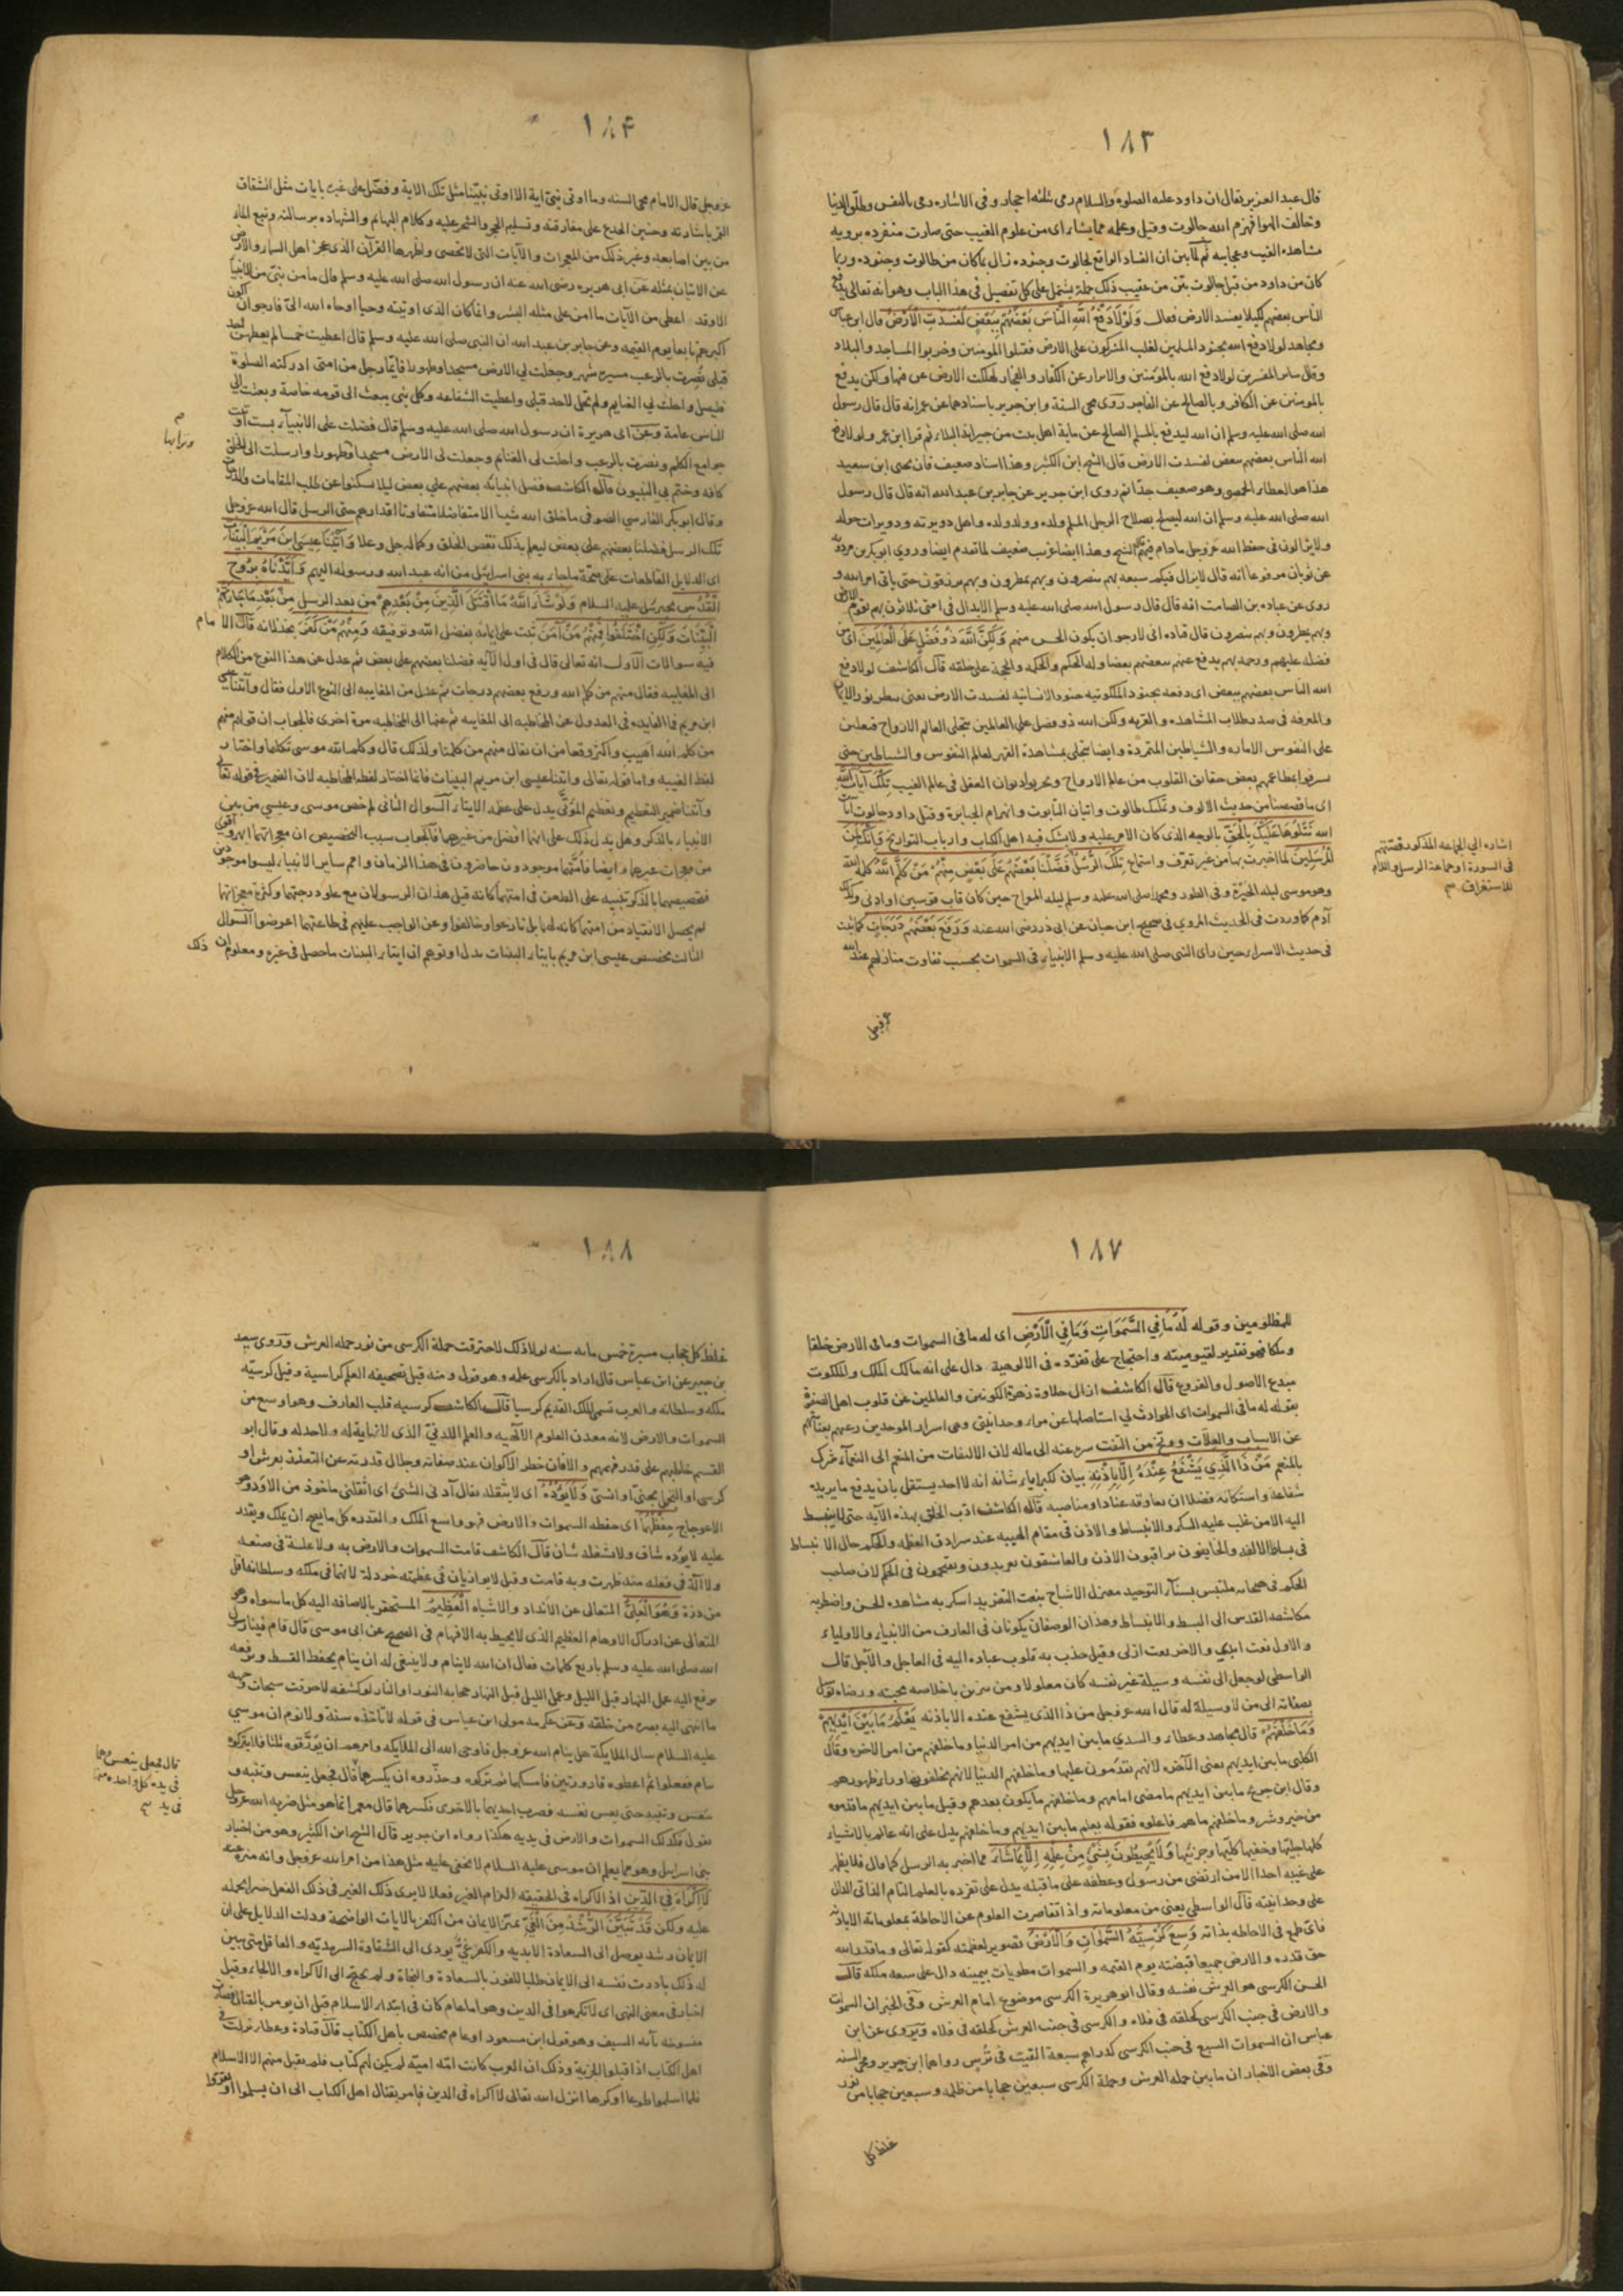 ١٨٣
قال عبد العزيز يقال ان داود عليه الصلوة والسلام رمى ثلثة احجار وفى الاشاره رمى بالنفس وطلّق الدنيا
وخالف الهوا فهزم الله جالوت وقيل وعلمه مما يشاء اى من علوم الغيب حتى صارت منفرده برويه
مشاهده الغيب وعجايبه ثم لما بين ان الفساد الواقع لجالوت وجنوده زال بما كان من طالوت وجنوده وربما
كان من داود من قبل جالوت بيّن من عقيب ذلك جملة يشتمل على كل تفصيل فى هذا الباب وهو انه تعالى يدفع
الناس بعضهم لكيلا يفسد الارض فقال وَلَوْلَا دَفْعُ اللهِ النَّاسَ بَعْضَهُمْ بِبَعْضٍ لَفَسَدَتِ الْاَرْضُ قال ابن عباس
ومجاهد لولا دفع الله بجنود المسلمين لغلب المشركون على الارض فقتلوا المومنين وخربوا المساجد والبلاد
وقال ساير المفسرين لولا دفع الله بالمؤمنين والابرار عن الكفار والفجار لهلكت الارض بمن فيها ولكن يدفع
بالمومن عن الكافر وبالصالح عن الفاجر روى محى السنة وابن جرير باسنادهما عن عمر انه قال قال رسول
الله صلى الله عليه وسلم ان الله ليدفع بالمسلم الصالح عن ماية اهل بيت من جيرانه البلاء ثم قرا ابن عمر ولولا دفع
الله الناس بعضهم ببعض لفسدت الارض قال الشيخ ابن الكثير وهذا اسناد ضعيف فان يحيى ابن سعيد
هذا هو العطار الحمصى وهو ضعيف جدّا ثم روى ابن جرير عن جابر بن عبد الله انه قال قال رسول
الله صلى الله عليه وسلم ان الله ليصلح بصلاح الرجل المسلم ولده وولد ولده واهل دويرته ودويرات حوله
ولا يزالون فى حفظ الله عز وجل ما دام فيهم قال الشيخ وهذا ايضا غريب ضعيف لما تقدم ايضا وروي ابو بكر بن مردويه
عن ثوبان مرفوعا انه قال لا يزال فيكم سبعه بهم ينصرون وبهم يمطرون وبهم يرزقون حتى ياتى امر الله و
روى عن عباده بن الصامت انه قال قال رسول الله صلى الله عليه وسلم الابدال فى امتى ثلاثون بهم تقوم الارض
وبهم يمطرون وبهم ينصرون قال قتاده انى لارجو ان يكون الحسن منهم وَلٰكِنَّ اللهَ ذُو فَضْلٍ عَلَى الْعَالَمِينَ اى من
فضله عليهم ورحمته بهم يدفع عنهم ببعضهم بعضا وله الحكم والحكمه والحجة على خلقه قال الكاشف لولا دفع
الله الناس بعضهم ببعض اى دفعه بجنود الملكوتيه جنود الانسانيه لفسدت الارض يعنى بنور الايمان
والمعرفه فى سد بطلاب المشاهده والقربه ولكن الله ذو فضل على العالمين بتجلى العالم الارواح
على النفوس الاماره والشياطين المتمردة وايضا بتجلى بمشاهدة القهر لعالم النفوس والشياطين حتى
بعض حقايق القلوب من عالم الارواح العقل فى عالم الغيب تِلْكَ آيَاتُ اللهِ
اى ما قصصنا من حديث الالوف وتمليك طالوت واتيان التابوت وانهزام الجبابرة وقتل داود جالوت آيات
الله نَتْلُوهَا عَلَيْكَ بِالْحَقِّ بالوجه الذى كان الامر عليه ولا يشك فيه اهل الكتاب وارباب التواريخ وَاِنَّكَ لَمِنَ
الْمُرْسَلِينَ لما اخبرت بها من غير تعرّف واستماع تِلْكَ الرُّسُلُ فَضَّلْنَا بَعْضَهُمْ عَلَى بَعْضٍ مِنْهُمْ مَنْ كَلَّمَ اللهُ كلمه الله
وهو موسى ليله الحَيْرة وفى الطور ومحمد صلى الله عليه وسلم ليله المعراج حين كان قاب قوسين او ادنى وكذلك
آدم كما وردت فى الحديث المروي فى صحيح ابن حبان عن ابى ذر رضى الله عنه وَرَفَعَ بَعْضَهُمْ دَرَجَاتٍ كما ثبت
فى حديث الاسراء حين راى النبى صلى الله عليه وسلم الانبياء فى السموات بحسب تفاوت منازلهم عند الله
عز وجل
اشاره الي الجماعه المذكور قصتهم
فى السورة او جماعة الرسل واللام
للاستغراق
١٨٤
عزوجل قال الامام محى السنه وما اوتى نبىّ اية الا اوتى نبيّنا مثل تلك الاية وفضّل على غيره بايات مثل انشقاق
القمر باشارته وحنين الجذع على مفارقته وتسليم الحجر والشجر عليه وكلام البهايم والشهاده برسالته ونبع الماء
من بين اصابعه وغير ذلك من المعجزات والآيات التى لا تحصى واظهرها القرآن الذى عجز اهل السماء والارض
عن الاتيان بمثله عن ابى هريره رضى الله عنه ان رسول الله صلى الله عليه وسلم قال ما من نبىّ من الانبيا
الا وقد اعطى من الآيات ما امن على مثله البشر وانما كان الذى اوتيته وحيا اوحاه الله الىّ فارجو ان اكون
اكثرهم تابعا يوم القيمه وعن جابر بن عبد الله ان النبى صلى الله عليه وسلم قال اعطيت خمسا لم يعطهن احد
قبلى نُصرت بالرعب مسيره شهر وجعلت لي الارض مسجدا وطهورا فايّما رجل من امتى ادركته الصلوة
فليصل واحلت لي الغنايم ولم تحل لاحد قبلى واعطيت الشفاعه وكل نبى يبعث الى قومه خاصة وبعثت الى
الناس عامة وعن ابى هريرة ان رسول الله صلى الله عليه وسلم قال فضلت على الانبيآء بست اوتيت
جوامع الكلم ونصرت بالرعب واحلت لى الغنايم وجعلت لى الارض مسجدا وطهورا وارسلت الى الخلق
كافه وختم بي النبيون قال الكاشف فضل انبيائه بعضهم على بعض ليلا يسكنوا عن طلب المقامات والدرجات
وقال ابو بكر الفارسى الصوفى ما خلق الله شيأ الا متفاضلا متفاوتا اقدارهم حتى الرسل قال الله عزوجل
تلك الرسل فضلنا بعضهم على بعض ليعلم بذلك نقص الخلق وكماله جل وعلا وَآتَيْنَا عِيسَى ابْنَ مَرْيَمَ الْبَيِّنَاتِ
اى الدلايل القاطعات على صحّة ما جاء به بنى اسرائيل من انه عبد الله ورسوله اليهم وَاَيَّدْنَاهُ بِرُوحِ
الْقُدُسِ بجبرئيل عليه السلام وَلَوْ شَاءَ اللهُ مَا اقْتَتَلَ الَّذِينَ مِنْ بَعْدِهِمْ من بعد الرسل مِنْ بَعْدِ مَا جَاءَتْهُمُ
الْبَيِّنَاتُ وَلٰكِنِ اخْتَلَفُوا فَمِنْهُمْ مَنْ آمَنَ ثبت على ايمانه بفضل الله وتوفيقه وَمِنْهُمْ مَنْ كَفَرَ بخذلانه قال الامام
فيه سوالات الاول انه تعالى قال فى اول الآيه فضلنا بعضهم على بعض ثم عدل عن هذا النوع من الكلام
الى المغايبه فقال منهم من كلم الله ورفع بعضهم درجات ثم عدل من المغايبه الى النوع الاول فقال وآتينا عيسى
ابن مريم فما الفايده فى العدول عن المخاطبه الى المغايبه ثم عنها الى المخاطبه مرة اخرى فالجواب ان قوله منهم
من كلم الله اهيب واكثر وقعا من ان يقال منهم من كلمنا ولذلك قال وكلم الله موسى تكليما واختار
لفظ الغيبه واما قوله تعالى واتينا عيسى ابن مريم البينات فانما اختار لفظ المخاطبه لان الضمير فى قوله تعالى
وآتينا ضمير التعظيم وتعظيم المؤتى يدل على عظم الايتاء السوال الثانى لم خص موسى وعيسى من بين
الانبياء بالذكر وهل يدل ذلك على انهما افضل من غيرهما فالجواب سبب التخصيص ان معجزاتهما ابهر واقوى
من معجزات غيرهما وايضا فامّتهما موجودون حاضرون فى هذا الزمان وامم ساير الانبياء ليسوا موجودين
فتخصيصهما بالذكر تنبيه على الطعن فى امتهما كانه قيل هذان الرسولان مع علو درجتهما وكثرة معجزاتهما
لم يحصل الانقياد من امتهما كانه لهما بل نازعوا وخالفوا وعن الواجب عليهم فى طاعتهما اعرضوا السوال
الثالث تخصيص عيسى ابن مريم بايتاء البينات يدل او توهم ان ايتاء البينات ما حصل فى غيره ومعلوم ان ذلك
وترابها
١٨٧
للمظلومين وقوله لَهُ مَا فِي السَّمٰوَاتِ وَمَا فِي الْاَرْضِ اى له ما فى السموات وما فى الارض خلقا
وملكا فهو تقرير لقيوميته واحتجاج على تفرّده فى الالوهية دال على انه مالك الملك والملكوت
مبدع الاصول والفروع قال الكاشف ازال حلاوة زهرة الكونين والعالمين عن قلوب اهل الصفوة
بقوله له ما فى السموات اى الحوادث لي استاصلها عن مراد وحدانيتى وهى اسرار الموحدين
عن الاسباب والعلات ووبّخ من التفت سره عنه الى ماله لان الالتفات من المنعم الى النعمآء شرك
بالمنعم مَنْ ذَا الَّذِي يَشْفَعُ عِنْدَهُ اِلَّا بِاِذْنِهِ بيان لكبرياء شانه انه لا احد يستقل بان يدفع ما يريده
شفاعة واستكانة فضلا ان يعاوقه عنادا ومناصبه قال الكاشف ادّب الخلق بهذه الآيه حتى لا ينبسط
اليه الا من غلب عليه السكر والانبساط والاذن فى مقام الهيبه عند سرادق العظمه والحكم حال الانبساط
فى بساط الالفه والخايفون يراقبون الاذن والعاشقون يعربدون ويقتحمون فى الحكم لان صاحب
الحكم فى هيمانه ملتبس بسنآء التوحيد معزل الاشباح بنعت التفريد اسكر به مشاهده الحسن واضطر به
مكاشفه القدس الى البسط والانبساط وهذان الوصفان يكونان فى العارف من الانبياء والاولياء
والاول نعت ابدي والاخر نعت ازلى وقيل جذب به قلوب عباده اليه فى العاجل والآجل قال
الواسطى لو جعل الى نفسه وسيلة غير نفسه كان معلولا ومن تزين باخلاصه محبته ورضاه توسل
بصفاته الى من لا وسيلة له قال الله عزوجل من ذا الذى يشفع عنده الا باذنه يَعْلَمُ مَا بَيْنَ اَيْدِيهِمْ
وَمَا خَلْفَهُمْ قال مجاهد وعطاء والسدي ما بين ايديهم من امر الدنيا وما خلفهم من امر الاخره وقال
الكلبى ما بين ايديهم يعنى الآخره لانهم تقدّمون عليها وما خلفهم الدنيا لانهم يخلفونها وراء ظهورهم
وقال ابن جريج ما بين ايديهم ما مضى امامهم وما خلفهم ما يكون بعدهم وقيل ما بين ايديهم ما قدموه
من خير وشر وما خلفهم ما هم فاعلوه فقوله يعلم ما بين ايديهم وما خلفهم يدل على انه عالم بالاشياء
كلها جليّتها وخفيها كليّتها وجزئيّها وَلَا يُحِيطُونَ بِشَيْءٍ مِنْ عِلْمِهِ اِلَّا بِمَا شَاءَ مما اخبر به الرسل كما قال فلا يظهر
على غيبه احدا الا من ارتضى من رسول وعطفه على ما قبله يدل على تفرده بالعلم التام الذاتى الدال
على وحدانيته قال الواسطى يعنى من معلوماته واذا تقاصرت العلوم عن الاحاطة بمعلوماته الا باذنه
فاىّ طمع فى الاحاطه بذاته وَسِعَ كُرْسِيُّهُ السَّمٰوَاتِ وَالْاَرْضَ تصوير لعظمته كقوله تعالى وما قدروا الله
حق قدره والارض جميعا قبضته يوم القيمه والسموات مطويات بيمينه دال على سعه ملكه قال
الحسن الكرسى هو العرش نفسه وقال ابو هريرة الكرسى موضوع امام العرش وفى الخبر ان السموات
والارض فى جنب الكرسى كحلقه فى فلاه والكرسى فى جنب العرش كحلقه فى فلاه ويروى عن ابن
عباس ان السموات السبع فى جنب الكرسى كدراهم سبعة القيت فى تُرس رواهما ابن جرير ومحى السنه
وفى بعض الاخبار ان ما بين حمله العرش وحملة الكرسى سبعين حجابا من ظلمه وسبعين حجابا من نور
غلظ كل
١٨٨
غلظ كل حجاب مسيرة خمس مايه سنه لولا ذلك لاحترقت حملة الكرسى من نور حمله العرش وروى سعيد
بن جبير عن ابن عباس قال اراد بالكرسى علمه وهو قول ومنه قيل لصحيفه العلم كراسية وقيل كرسيّه
ملكه وسلطانه والعرب تسمى الملك القديم كرسيا قال الكاشف كرسيه قلب العارف وهو اوسع من
السموات والارض لانه معدن العلوم الآلهيه والعلم اللدنىّ الذى لا نهاية له ولا حد له وقال ابو
القسم خاطبهم على قدر فهمهم والا فاىّ خطر للاكوان عند صفاته وجلال قدرته عن التعزز بعرش او
كرسى او التجمل بجنىّ او انسىّ وَلَا يَؤُدُهُ اى لا يثقله يقال آدنى الشئ اى اثقلنى ماخوذ من الاود وهو
الاعوجاج حِفْظُهُمَا اى حفظه السموات والارض فهو واسع الملك والقدره كل ما يصح ان يملك ويقدر
عليه لا يؤده شاق ولا يشغله شان قال الكاشف قامت السموات والارض به ولا علة فى صنعه
ولا آلة فى فعله منه ظهرت وبه قامت وقيل لا يوازيان فى عظمته خردلة لانهما فى ملكه وسلطانه اقل
من ذرة وَهُوَ الْعَلِيُّ المتعالى عن الانداد والاشباه الْعَظِيمُ المستحقر بالاضافه اليه كل ما سواه وهو
المتعالى عن ادراك الاوهام العظيم الذى لا يحيط به الافهام فى الصحيح عن ابى موسى قال قام فينا رسول
الله صلى الله عليه وسلم باربع كلمات فقال ان الله لا ينام ولا ينبغى له ان ينام يخفظ القسط ويرفعه
يرفع اليه عمل النهار قبل الليل وعمل الليل قبل النهار حجابه النور او النار لو كشفه لاحرقت سبحات وجهه
ما انتهى اليه بصره من خلقه وعن عكرمه مولى ابن عباس فى قوله لا تاخذه سنة ولا نوم ان موسى
عليه السلام سال الملايكة هل ينام الله عز وجل فاوحى الله الى الملايكه وامرهم ان يؤرّقوه ثلثا فلا يتركوه
ينام ففعلوا ثم اعطوه قارورتين فامسكهما ثم تركوه وحذّروه ان يكسرهما قال فجعل ينعس وينتبه و
ينعس وينتبه حتى نعس نعسه فضرب احديهما بالاخرى فكسرهما قال معمر انما هو مثل ضربه الله عزوجل
يقول فكذلك السموات والارض فى يديه هكذا رواه ابن جرير قال الشيخ ابن الكثير وهو من اخبار
بنى اسرايل وهو مما يعلم ان موسى عليه السلام لا يخفى عليه مثل هذا من امر الله عزوجل وانه منزه عنه
لَا اِكْرَاهَ فِي الدِّينِ اذ الاكراه فى الحقيقه الزام الغير فعلا لا يرى ذلك الغير فى ذلك الفعل خيرا يحمله
عليه ولكن قَدْ تَبَيَّنَ الرُّشْدُ مِنَ الْغَيِّ تميّز الايمان من الكفر بالايات الواضحة ودلت الدلايل على ان
الايمان رشد يوصل الى السعادة الابديه والكفر غىّ يودى الى الشقاوة السرمديّه والعاقل متى تبين
له ذلك بادرت نفسه الى الايمان طلبا للفوز بالسعادة والنجاة ولم يحتج الى الاكراه والالجاء وقيل
اخبار فى معنى النهى اى لا تكرهوا فى الدين وهو اما عام كان فى ابتداء الاسلام قبل ان يومر بالقتال فصارت
منسوخه بآيه السيف وهو قول ابن مسعود او عام مخصص باهل الكتاب قال قتادة وعطاء نزلت فى
اهل الكتاب اذا قبلوا الجزية وذلك ان العرب كانت امّه اميّه لم يكن لهم كتاب فلم يقبل منهم الا الاسلام
فلما اسلموا طوعا او كرها انزل الله تعالى لا اكراه فى الدين فامر بقتال اهل الكتاب الى ان يسلموا او يقروا
قال فجعل ينعس وهما
فى يده كل واحده منهما
فى يد